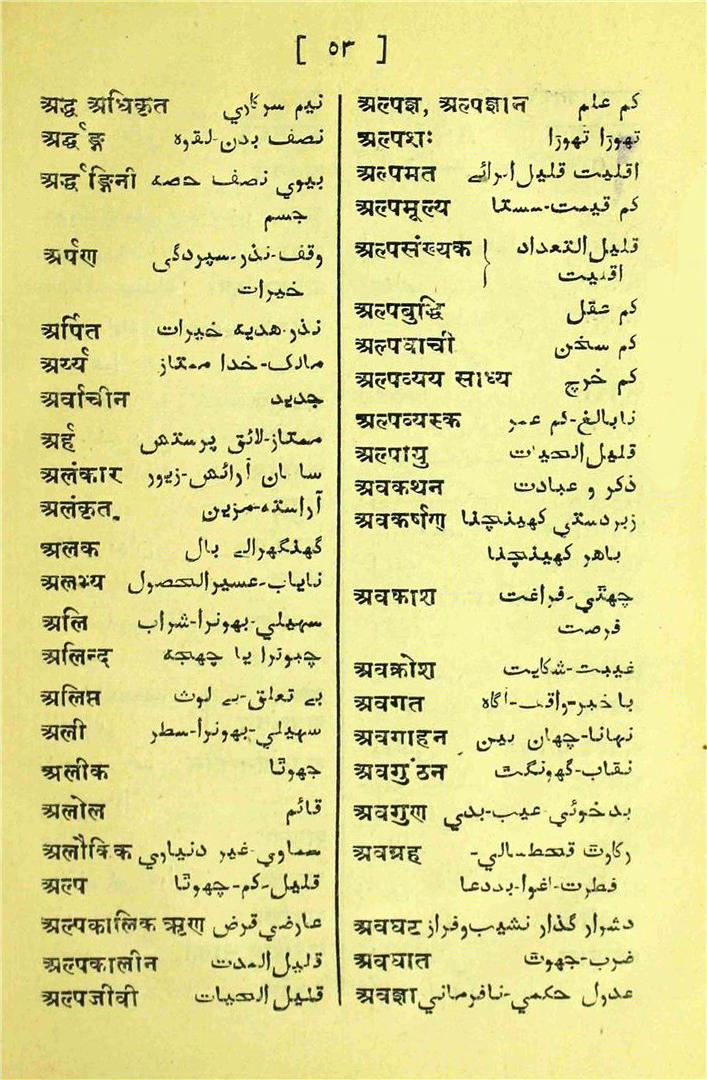 [ ٥٣ ]
अर्द्ध अधिकृत نیم سرکاري
अर्द्धाङ्ग نصف بدن-لقوہ
अर्द्धाङ्गिनी بیوي نصف حصہ
جسم
अर्पण وقف-نذر-سپردگی
خیرات
अर्पित نذر-ھدیہ خیرات
अर्य्य مالک-خدا ممتاز
अर्वाचीन جدید
अर्ह ممتاز-لائق پرستش
अलंकार سامان آرائش-زیور
अलंकृत آراستہ-مزین
अलक گھنگھرالے بال
अलभ्य نایاب-عسیرالحصول
अलि سہیلي-بھونرا-شراب
अलिन्द چبوترا یا چھجہ
अलिप्त بے تعلق-بے لوث
अली سہیلي-بھونرا-سطر
अलीक جھوٹا
अलोल قائم
अलौकिक سماوي-غیر دنیاوي
अल्प قلیل-کم-چھوٹا
अल्पकालिक ऋण عارضي قرض
अल्पकालीन قلیل المدت
अल्पजीवी قلیل الحیات
अल्पज्ञ, अल्पज्ञान کم علم
अल्पशः تھوڑا تھوڑا
अल्पमत اقلیت قلیل الرائے
अल्पमूल्य کم قیمت-سستا
अल्पसंख्यक } قلیل التعداد
اقلیت
अल्पबुद्धि کم عقل
अल्पवाची کم سخن
अल्पव्यय साध्य کم خرچ
अल्पव्यस्क نابالغ-کم عمر
अल्पायु قلیل الحیات
अवकथन ذکر و عبادت
अवकर्षण زبردستي کھینچنا
باھر کھینچنا
अवकाश چھٹي-فراغت
فرصت
अवक्रोश غیبت-شکایت
अवगत باخبر-واقف-آگاہ
अवगाहन نہانا-چھان بین
अवगुंठन نقاب-گھونگٹ
अवगुण بدخوئي-عیب-بدي
अवग्रह رکاوٹ قحط سالي-
فطرت-اغوا-بددعا
अवघट دشوار گذار نشیب و فراز
अवघात ضرب-جھوٹ
अवज्ञा عدول حکمي-نافرماني